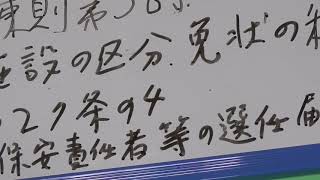 則第38条
設の区分.免状の種
27条の4
保安責任者等の選任届